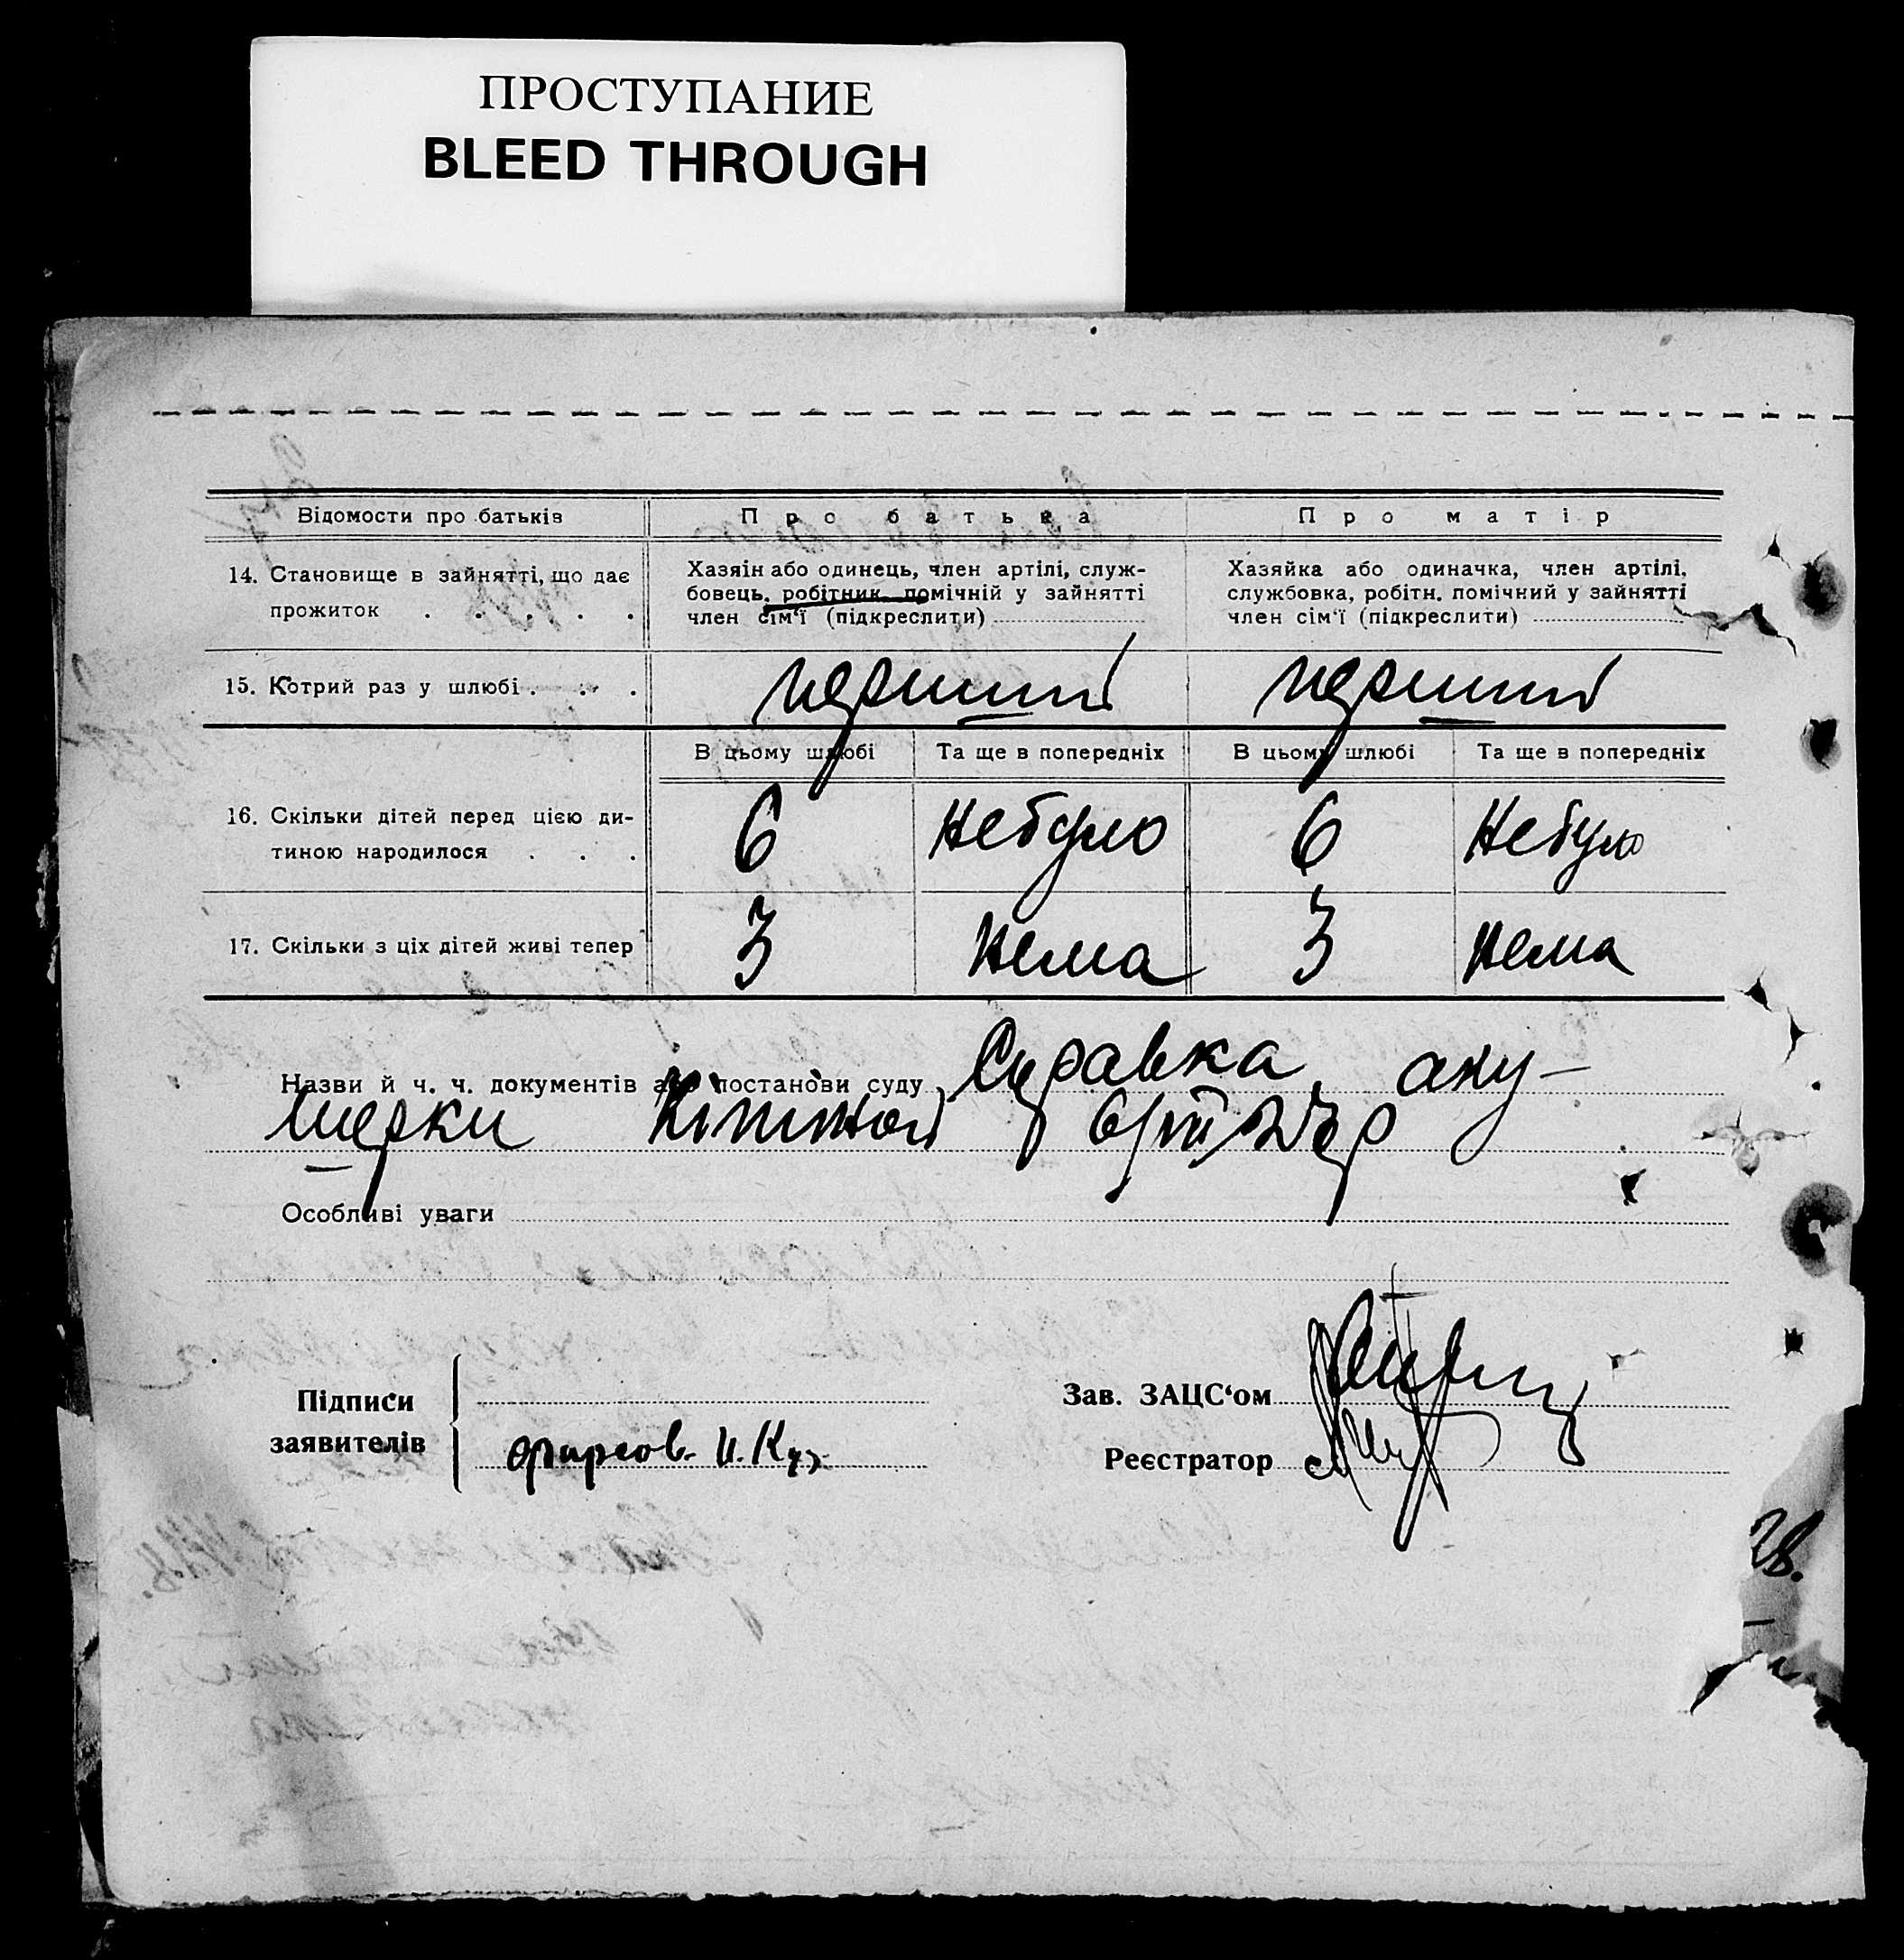 ПРОСТУПАНИЕ
BLEED THROUGH
Відомости про батьків
Про батька
Про матір
14. Становище в зайнятті, що дає
прожиток . . . . .
Хазяін або одинець, член артілі, служ-
бовець, робітник, помічній у зайнятті
член сім‘ї (підкреслити)
Хазяйка або одиначка, член артілі,
службовка, робітн. помічний у зайнятті
член сім‘ї (підкреслити)
15. Котрий раз у шлюбі . . .
перший
перший
В цьому шлюбі
Та ще в попередніх
В цьому шлюбі
Та ще в попередніх
16. Скільки дітей перед цією ди-
тиною народилося . . .
6
Небуло
6
Небуло
17. Скільки з ціх дітей живі тепер
3
Нема
3
Нема
Назви й ч. ч. документів або постанови суду Справка аку-
шерки
Особливі уваги
Підписи
заявителів
Фирсов. И. Куз
Зав. ЗАЦС‘ом
Реєстратор